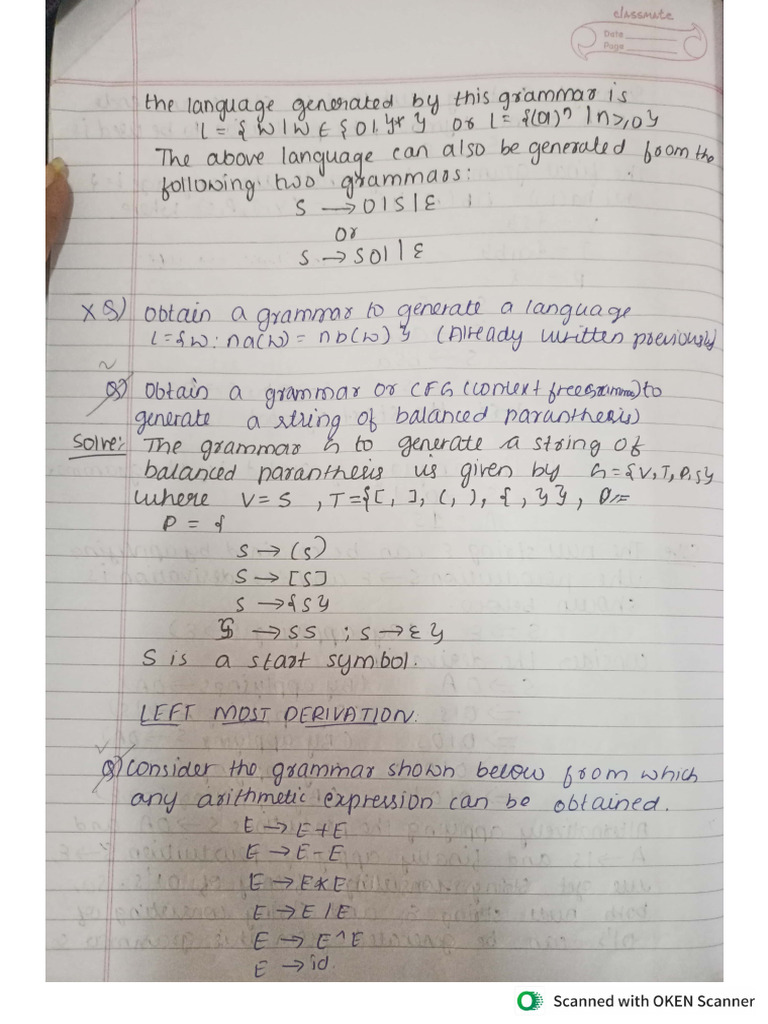 classmate
Date
Page
the language generated by this grammar is
L = { w | w ∈ { 01 }* } or L = {(01)ⁿ | n>,0}
The above language can also be generated from the
following two grammars:
S → 01S | ε
or
S → S01 | ε
X Q) Obtain a grammar to generate a language
L = {w : na(w) = nb(w) } (Already written previously)
Q) Obtain a grammar or CFG (context free Grammar) to
generate a string of balanced paranthesis)
Solve: The grammar G to generate a string of
balanced paranthesis is given by G = {V, T, P, S}
where V = S , T = {[, ], (, ), { , }} , P =
P = {
S → (S)
S → [S]
S → {S}
S → SS ; S → ε }
S is a start symbol.
LEFT MOST DERIVATION.
Q) Consider the grammar shown below from which
any arithmetic expression can be obtained.
E → E + E
E → E - E
E → E * E
E → E / E
E → E ^ E
E → id.
Scanned with OKEN Scanner